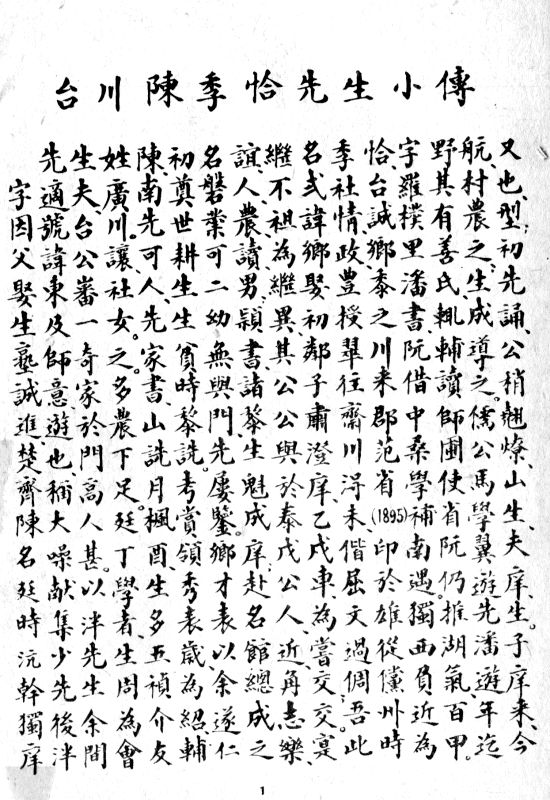 台川陳季恰先生小傳
先生姓陳初名誼繼名季恰字野航又
字適夫廣南奠磐人不弌社台羅其村也
因號台川先世業農祖諱情誠樸有農型
父諱公讓可耕可讀為鄉政鄉里善之初
娶東審社人生二男繼娶豊黍潘氏生先
生及一女先生幼穎異初授之書輒成誦
塾師奇之家貧無書其鄰翠川阮輔導公
誠意家多書時與諸公子往來借讀之稍
進遊於農山黎門黎公肅齋郡中師儒翹
楚也門下詵詵先生與澄川范桑圃公燎
齊稱高足月考屢魁於庠得省學使馬山
陳大人廷楓賞鑒成泰乙未(1895)補省學生
名噪甚丁酉領鄉庠戊戌偕印南阮翼夫
廷献以學生秀才赴公車屈於遇仍遊庠
時集泮者多表表名人為文雄獨推先生
沅少先生五歲以館近嘗過從西湖潘子
幹先生周禎為余總角交倜儻負氣遊庠
獨後余為介紹遂成志交吾州近百年來
庠泮間會友輔仁之樂寔此時為甲迄今
1